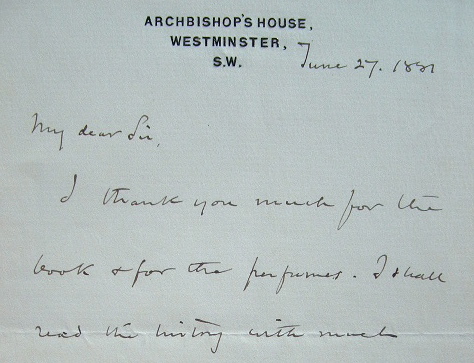 ARCHBISHOP'S HOUSE,
WESTMINSTER,
S.W.
June 27. 1881
My dear Sir,
I thank you much for the
book & for the perfumes. I shall
read the history with much